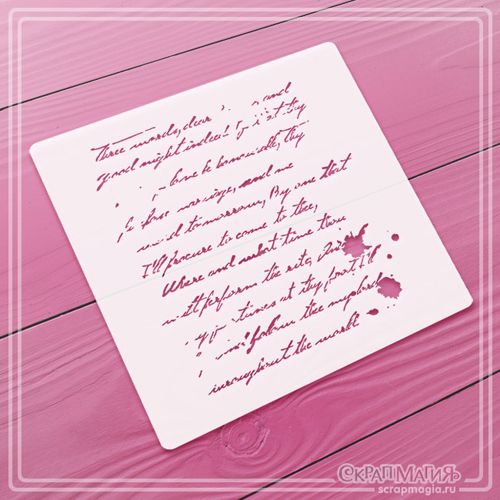 Three words, dear and
good night indeed
love be honourable, thy
marriage, and me
word tomorrow, By one that
I'll procure to come to thee,
Where and what time thou
wilt perform the rite, And
at thy foot I'll
follow the
throughout the world
СКРАПМАГИЯ
scrapmagia.ru